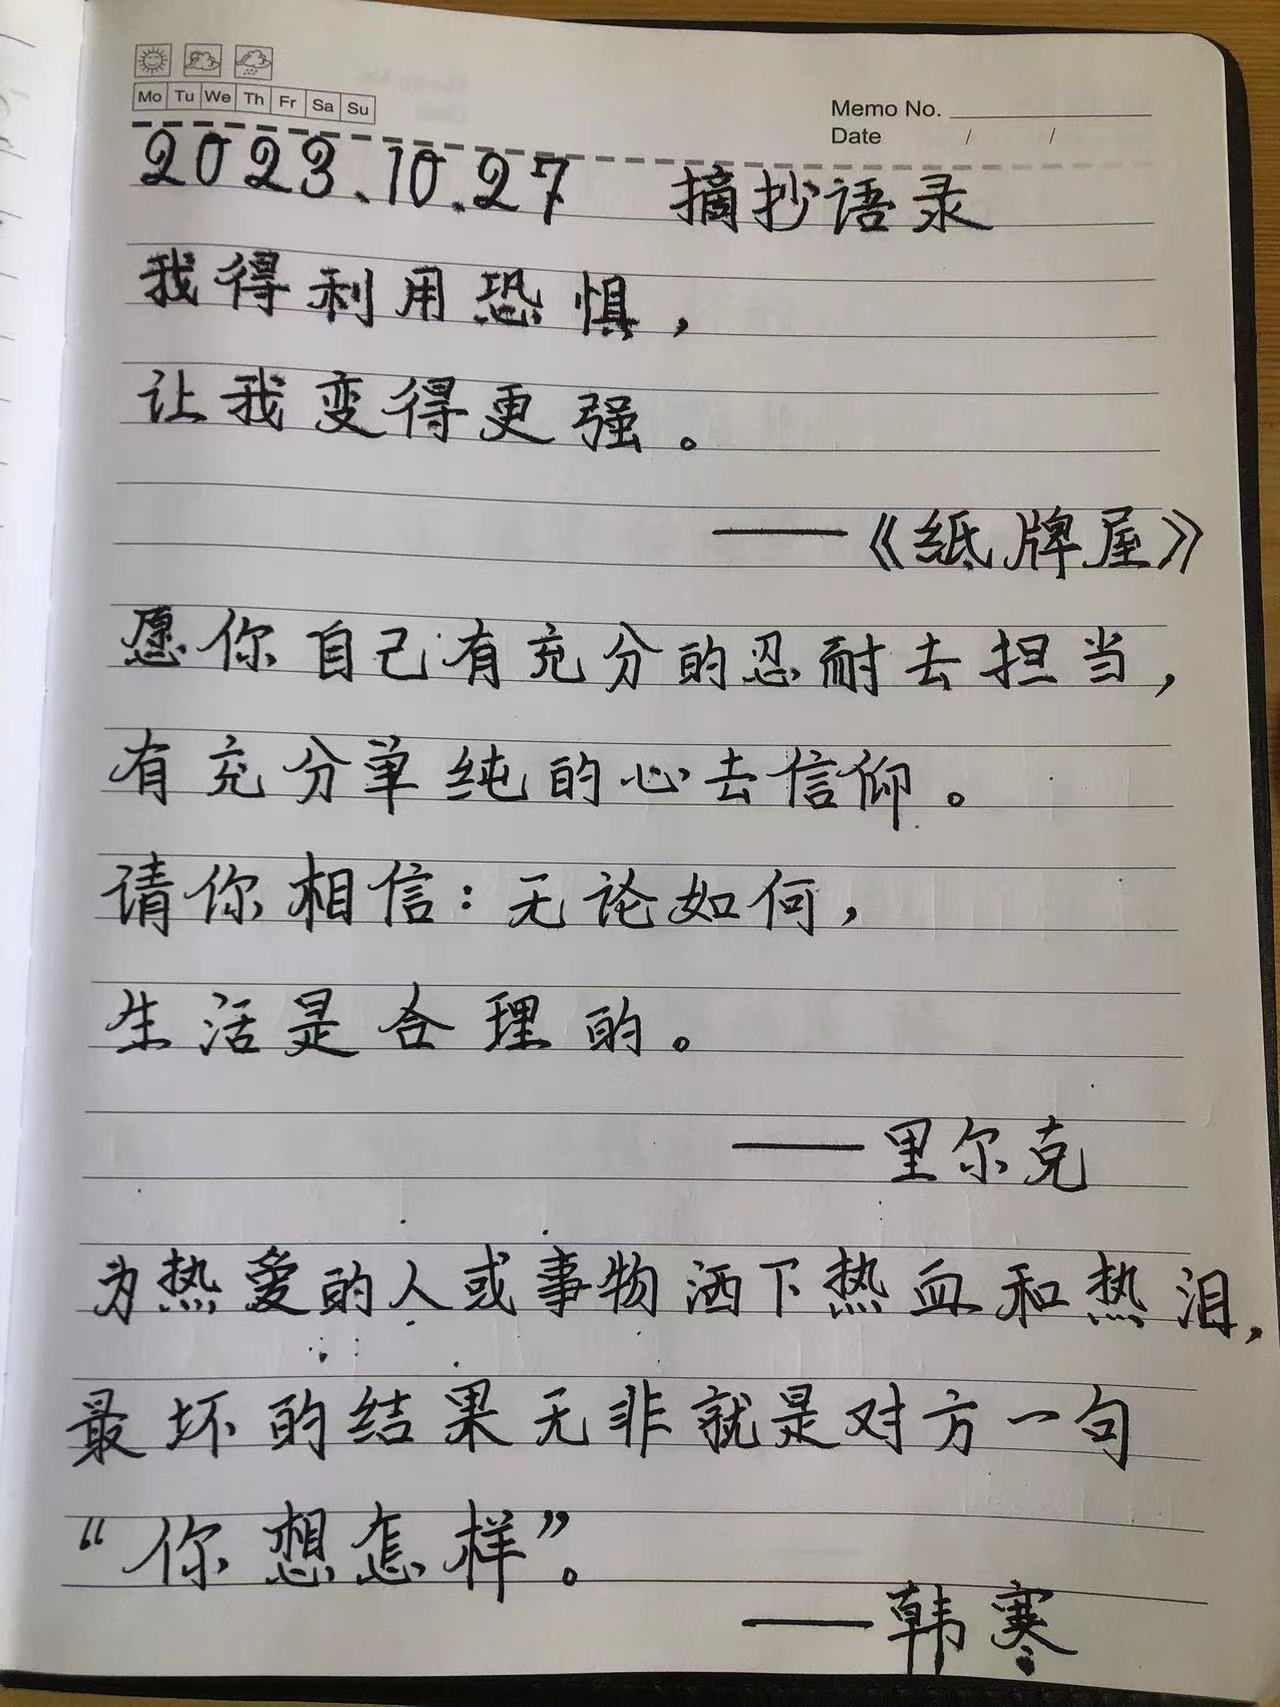 Mo Tu We Th Fr Sa Su
Memo No.
Date / /
2023.10.27 摘抄语录
我得利用恐惧，
让我变得更强。
——《纸牌屋》
愿你自己有充分的忍耐去担当，
有充分单纯的心去信仰。
请你相信：无论如何，
生活是合理的。
——里尔克
为热爱的人或事物洒下热血和热泪，
最坏的结果无非就是对方一句
“你想怎样”。
——韩寒